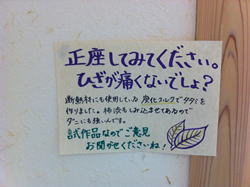 正座してみてください。
ひざが痛くないでしょ?
断熱材にも使用している 炭化コルクでタタミ
を作りました。柿渋もしみ込ませてあるので
ダニにも強いんです。
試作品なのでご意見
お聞かせくださいね!